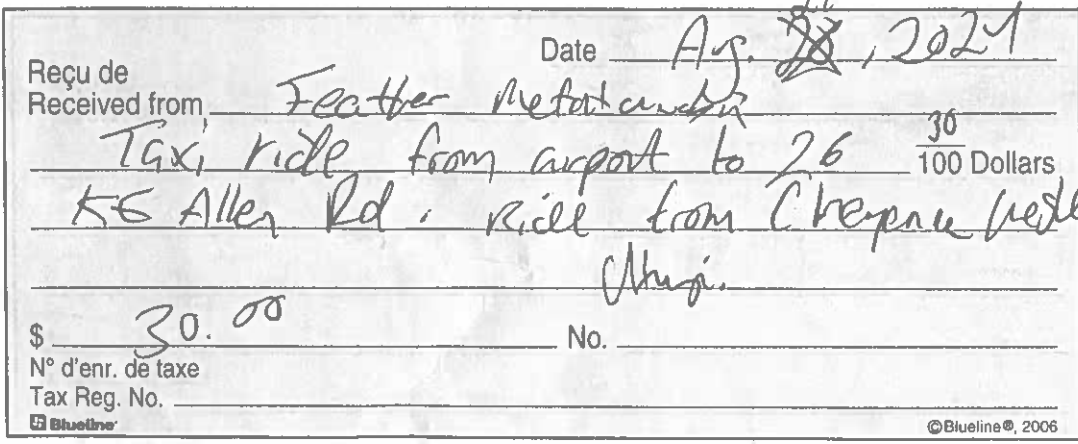 Date Aug. , 2021
Reçu de
Received from Feather
Taxi ride from airport to 26 30/100 Dollars
Allen Rd. Ride from Cheyenne
$ 30.00 No.
N° d'enr. de taxe
Tax Reg. No.
Blueline ©Blueline®, 2006